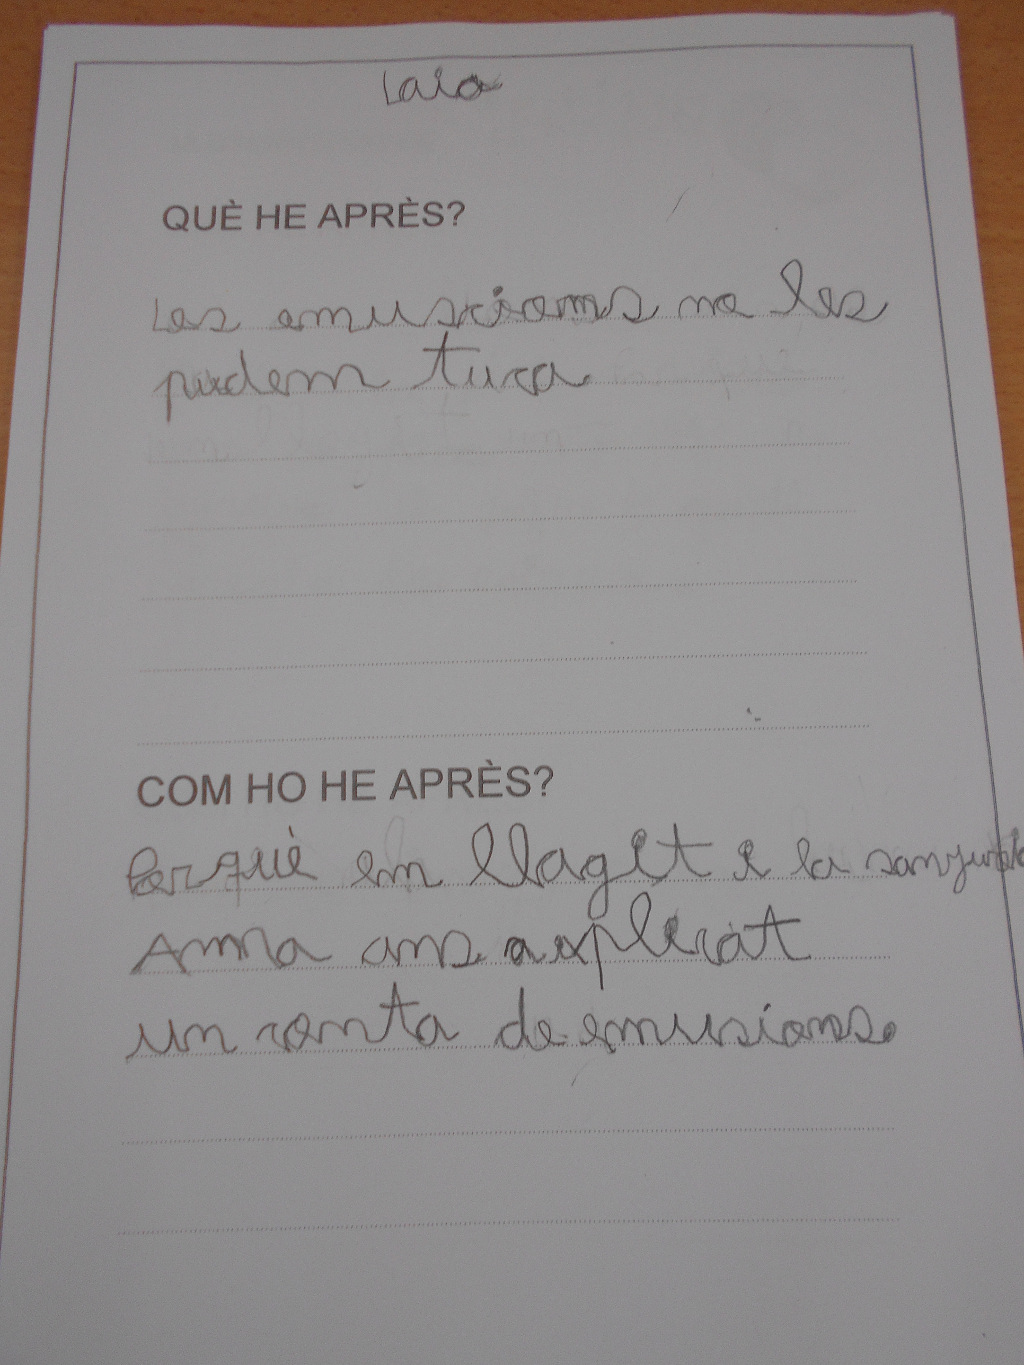 Laia
QUÈ HE APRÈS?
Les emusions no les
pudem tuca
COM HO HE APRÈS?
Perquè em llagit i la
Anna ans axplicat
un conta de emusions.